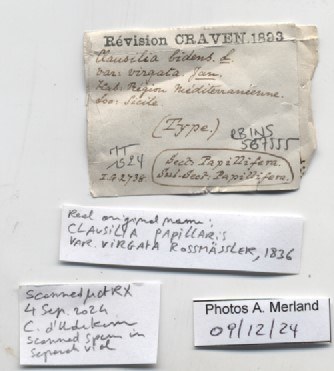 Révision CRAVEN.1893
Clausilia bidens. L.
var: virgata. Jan.
Hab: Région Méditerranienne.
Loc: Sicile
(Type.)
RBINS
567555
IT
1524
I.G 2738
Sect: Papillifera.
Sub-Sect: Papillifera.
Real original name:
CLAUSILIA PAPILLARIS
VAR. VIRGATA ROSSMÄSSLER, 1836
Scanned RX
4 Sep. 2024
C. d'Udekem
Scanned specim in
separate vial
Photos A. Merland
09/12/24